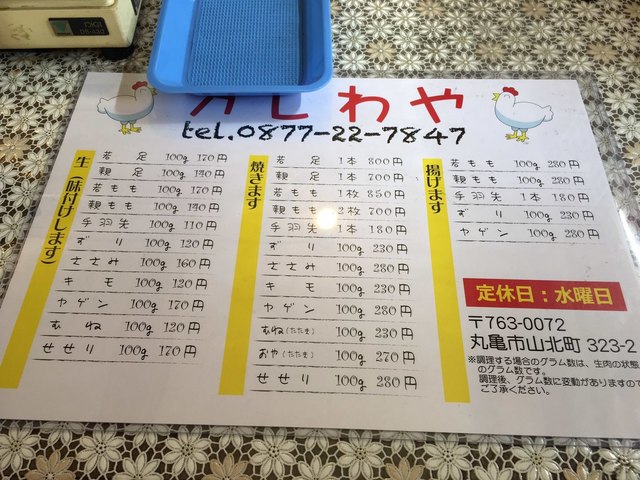 かしわや
tel.0877-22-7847
生(味付けします)
若足 100g 170円
親足 100g 140円
若もも 100g 170円
親もも 100g 140円
手羽先 100g 110円
ずり 100g 120円
ささみ 100g 160円
キモ 100g 120円
ヤゲン 100g 170円
むね 100g 120円
せせり 100g 170円
焼きます
若足 1本 800円
親足 1本 700円
若もも 1枚 850円
親もも 2枚 700円
手羽先 1本 180円
ずり 100g 230円
ささみ 100g 280円
キモ 100g 230円
ヤゲン 100g 280円
むね(たたき) 100g 230円
おや(たたき) 100g 270円
せせり 100g 280円
揚げます
若もも 100g 280円
親もも 100g 280円
手羽先 1本 180円
ずり 100g 230円
ヤゲン 100g 280円
定休日:水曜日
〒763-0072
丸亀市山北町 323-2
※調理する場合のグラム数は、生肉の状態
のグラム数です。
調理後、グラム数に変動がありますので
ご了承ください。